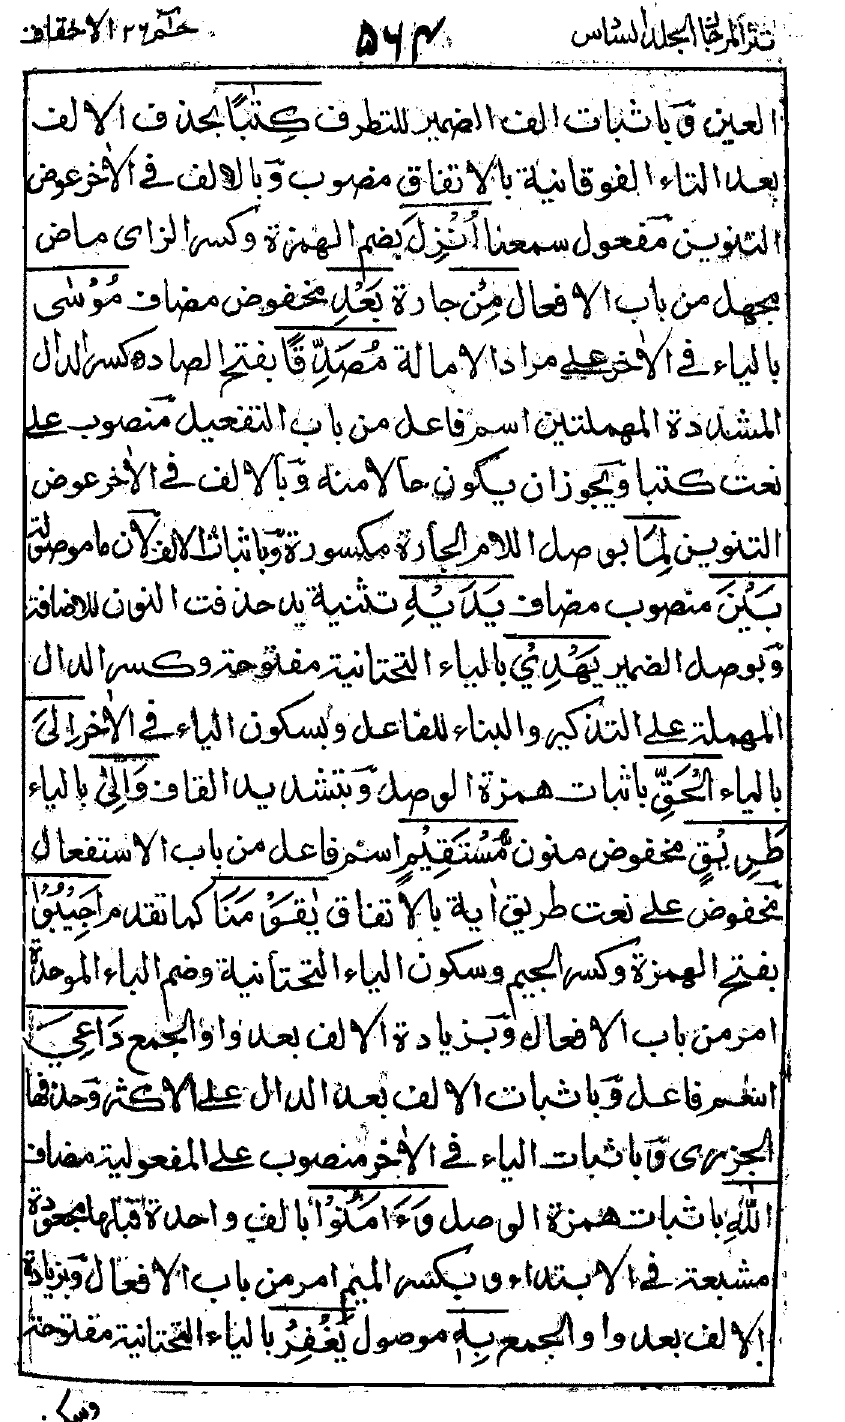 نثر المرجان المجلد السادس ٥٦٤ حٰم ٢٦ الاحقاف
العين وَباثبات الف الضمير للتطرف كِتٰبًا بحذف الالف
بعد التاء الفوقانية بالاتفاق منصوب وَبالالف فى الاٰخر عوض
التنوين مفعول سمعنا اُنْزِلَ بضم الهمزة وكسر الزاى ماض
مجهل من باب الافعال مِنْ جارة بَعْدِ مخفوض مضاف مُوْسٰى
بالياء فى الاٰخر على مراد الامالة مُصَدِّقًا بفتح الصاد وكسر الدال
المشددة المهملتين اسم فاعل من باب التفعيل منصوب على
نعت كتبا ويجوز ان يكون حالا منه وَبالالف فى الاٰخر عوض
التنوين لِمَا بوصل اللام الجارة مكسورة وَباثبات الالف لان ما موصولة
بَيْنَ منصوب مضاف يَدَيْهِ تثنية يد حذفت النون للاضافة
وَبوصل الضمير يَهْدِيْ بالياء التحتانية مفتوحة وكسر الدال
المهملة على التذكير والبناء للفاعل وبسكون الياء فى الاٰخر اِلَى
بالياء الْحَقِّ باثبات همزة الوصل وَبتشديد القاف وَاِلٰى بالياء
طَرِيْقٍ مخفوض منون مُّسْتَقِيْمٍ اسم فاعل من باب الاستفعال
مخفوض على نعت طريق اٰية بالاتفاق يٰقَوْمَنَا كما تقدم اَجِيْبُوْا
بفتح الهمزة وكسر الجيم وسكون الياء التحتانية وضم الباء الموحدة
امر من باب الافعال وَبزيادة الالف بعد واو الجمع دَاعِيَ
اسم فاعل وَباثبات الالف بعد الدال على الاكثر وَحذفها
الجزرى وَباثبات الياء فى الاٰخر منصوب على المفعولية مضاف
اللّٰهِ باثبات همزة الوصل وَءَامِنُوْا بالف واحدة قبلها مجعودة
مشبعة فى الابتداء وبكسر الميم امر من باب الافعال وَبزيادة
الالف بعد واو الجمع بِهٖ موصول يَغْفِرْ بالياء التحتانية مفتوحة
وسكون